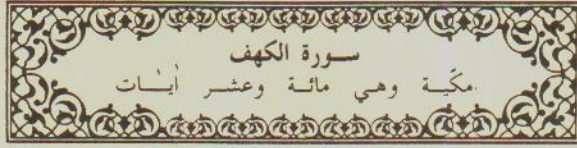 سورة الكهف
مكّية وهي مائة وعشر أيات